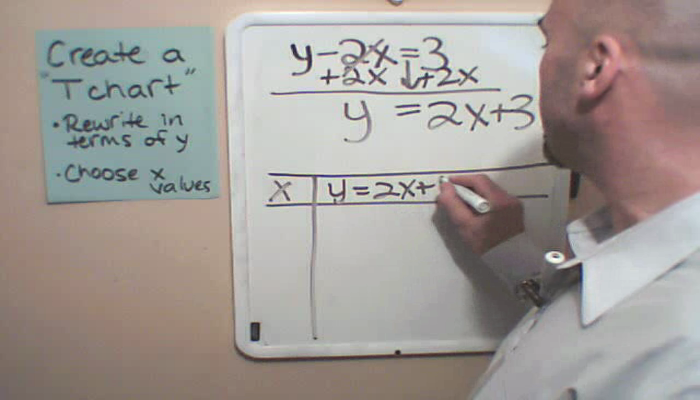 Create a
"Tchart"
• Rewrite in
terms of y
• Choose x
values
y-2x=3
+2x ↓+2x
y =2x+3
x | y=2x+